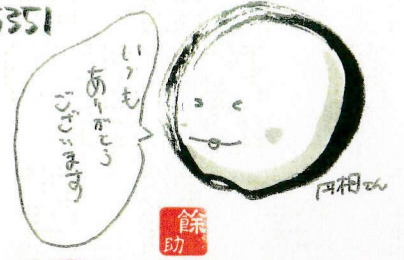 5351
いつも
ありがとう
ございます
円相さん
餘
助